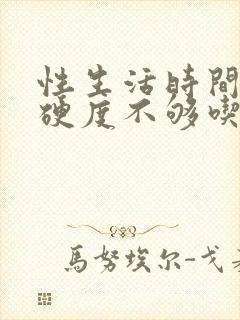 性生活時間
硬度不够喫
馬努埃尔-戈